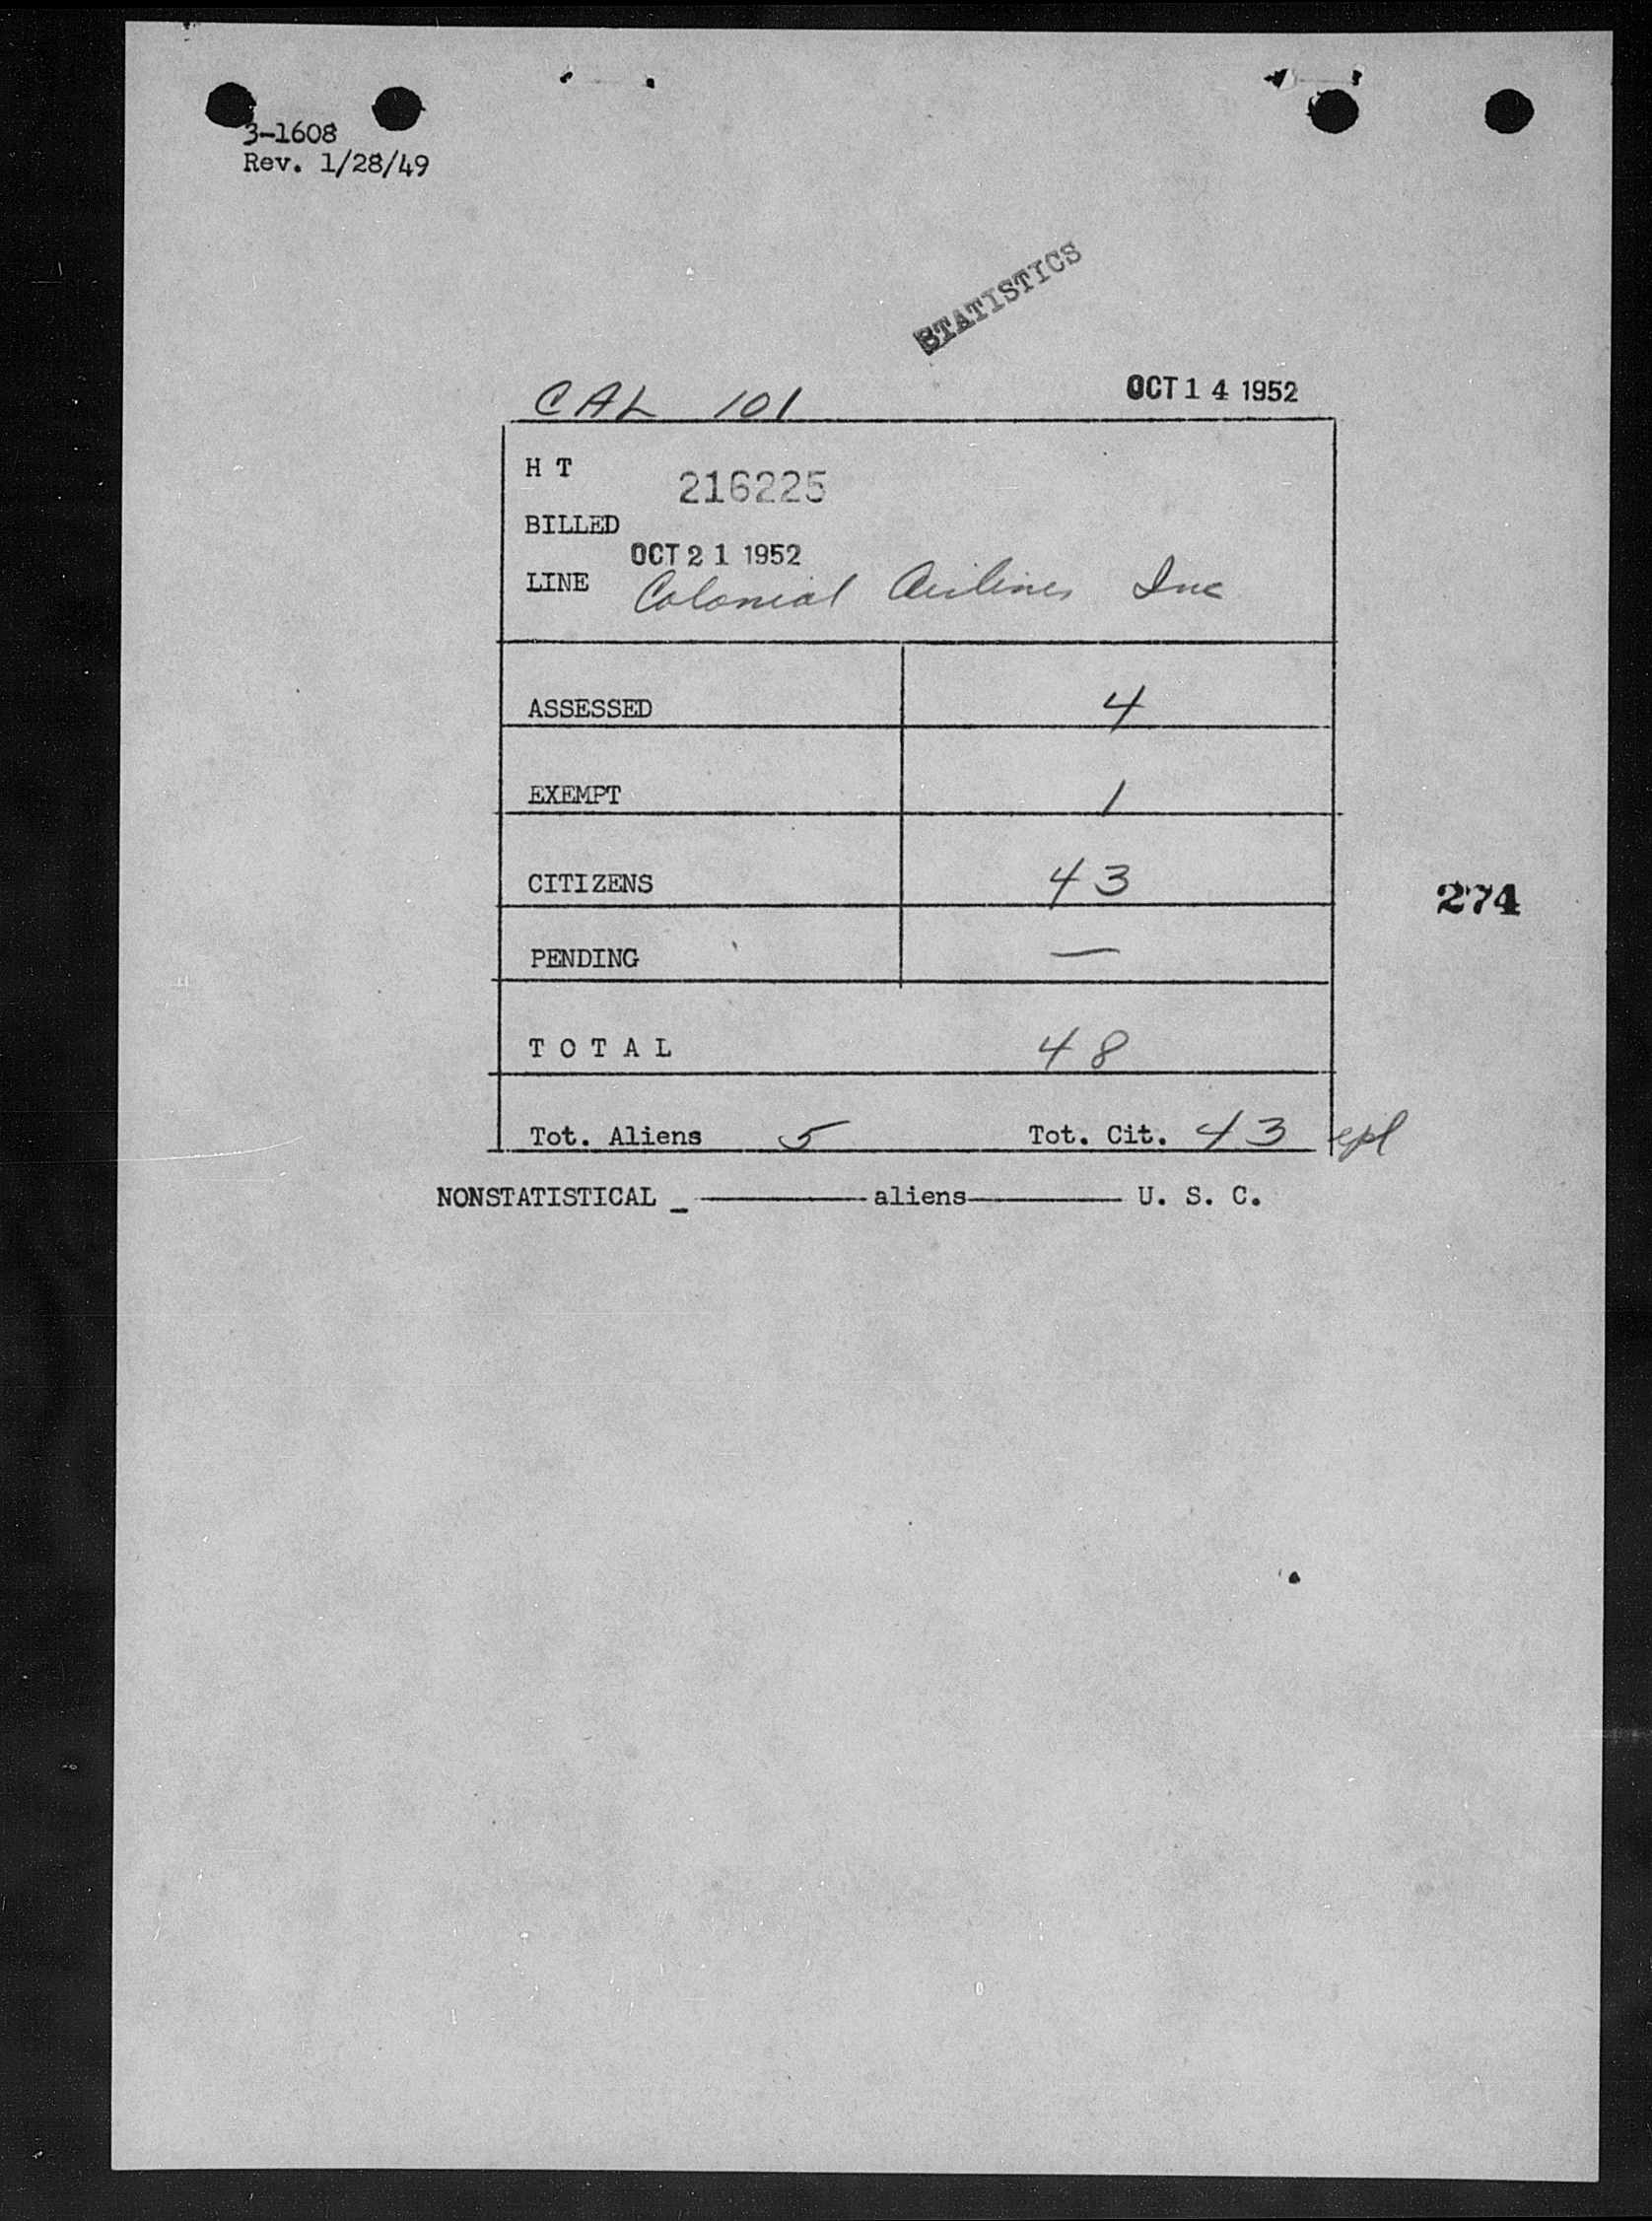 3-1608
Rev. 1/28/49
STATISTICS
CAL 101 OCT 14 1952
H T 216225
BILLED
OCT 21 1952
LINE Colonial Airlines Inc
ASSESSED 4
EXEMPT 1
CITIZENS 43
274
PENDING —
T O T A L 48
Tot. Aliens 5 Tot. Cit. 43 epl
NONSTATISTICAL _ ——— aliens ——— U. S. C.